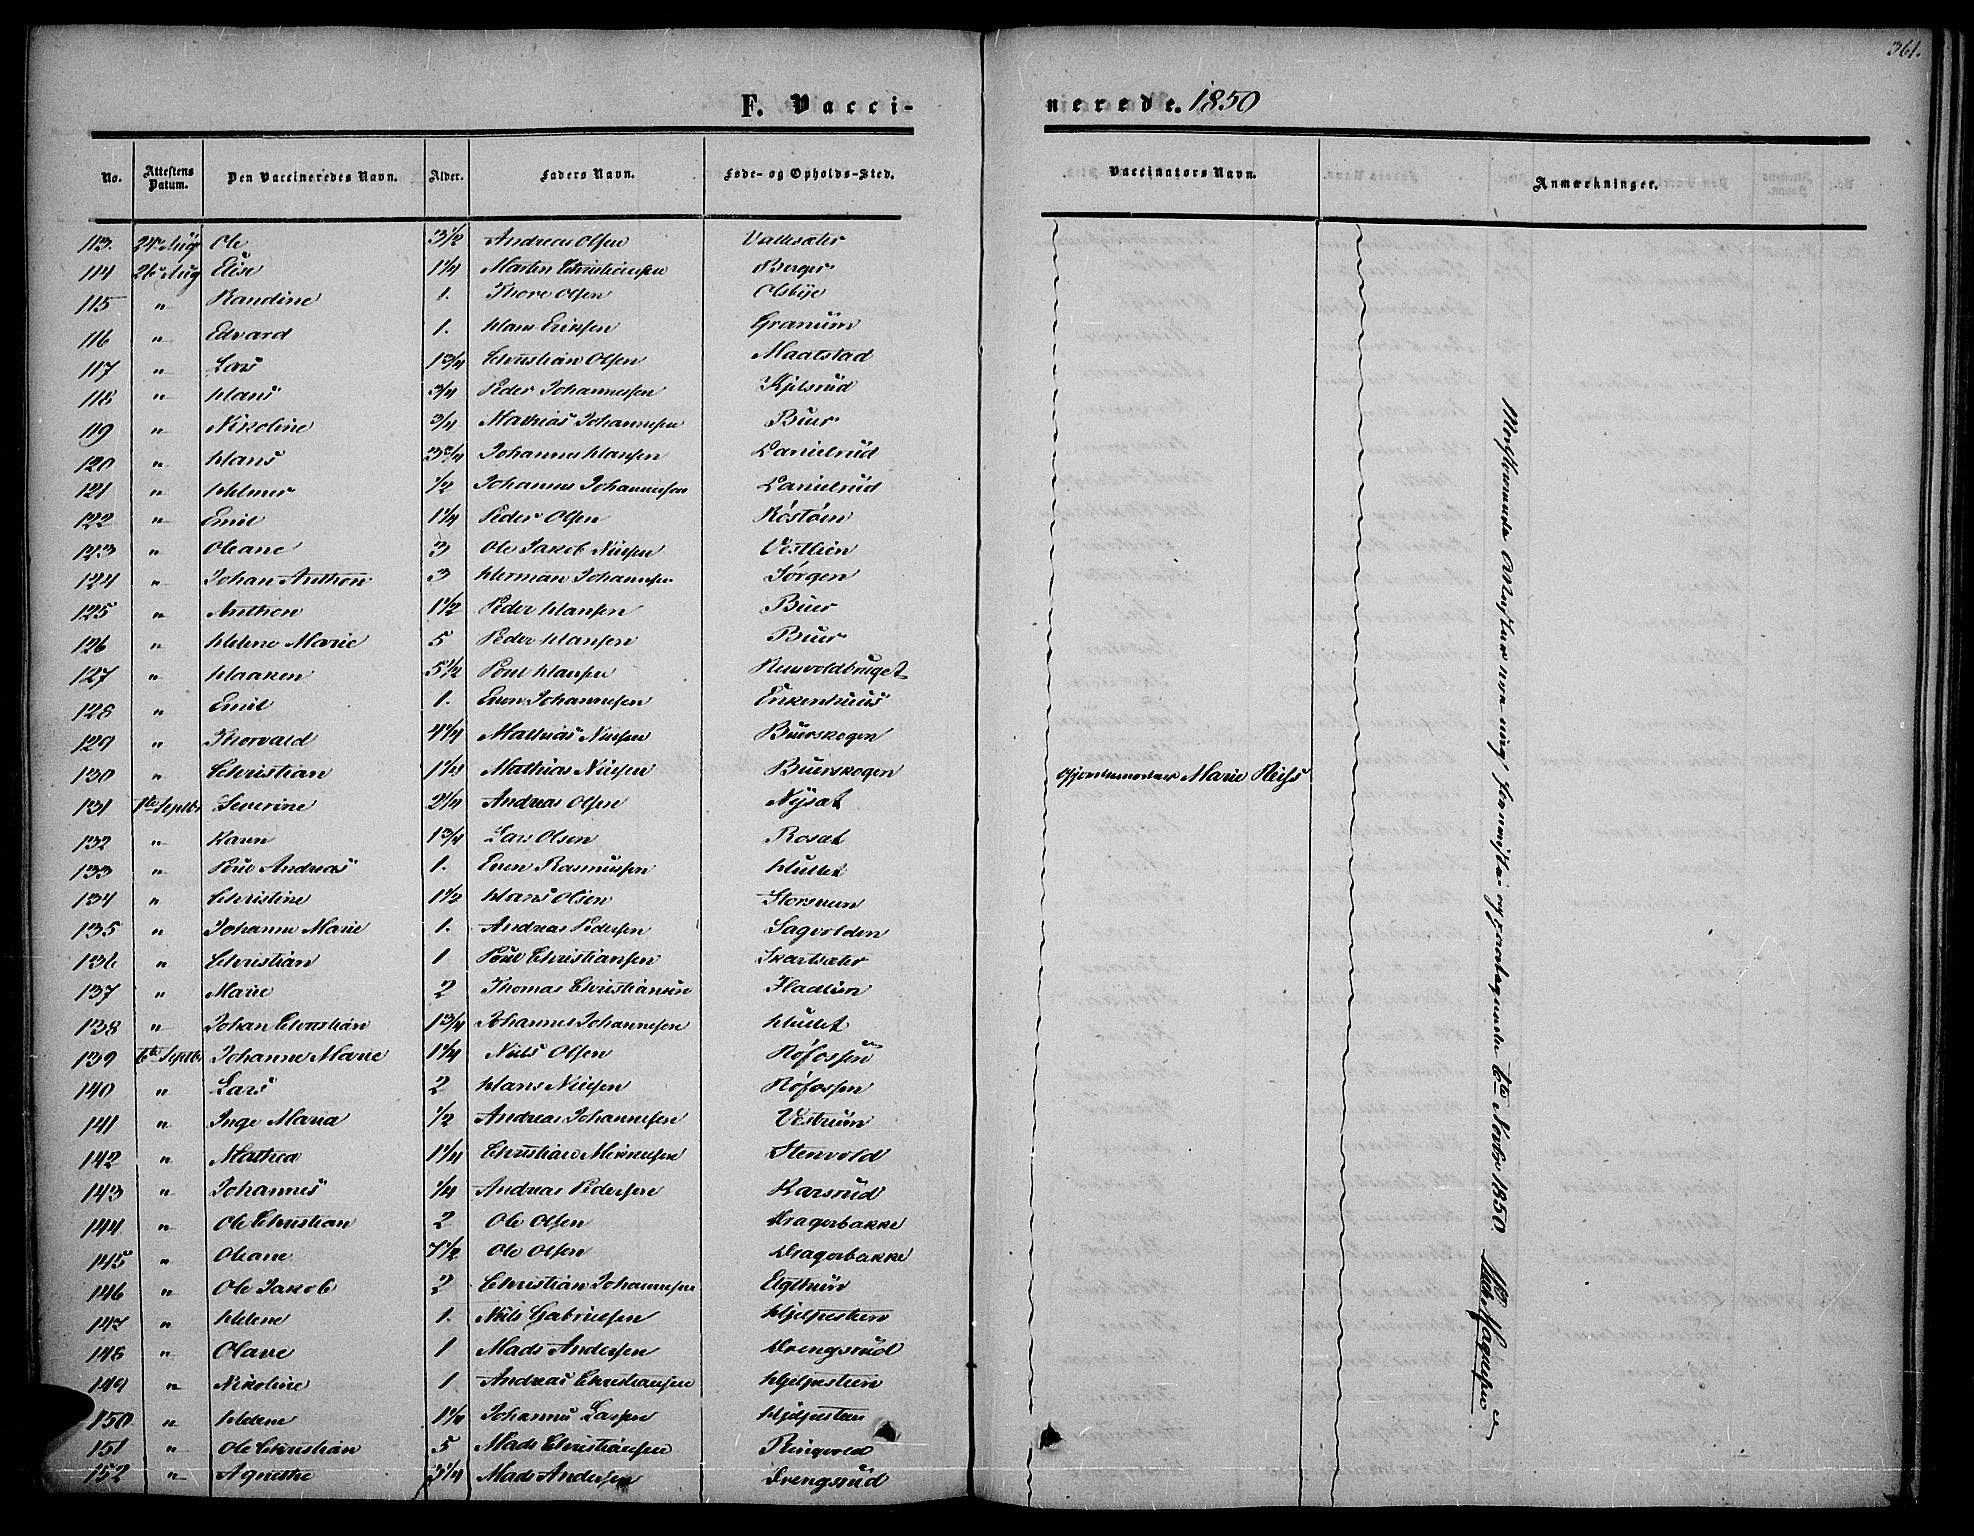 361.
F. Vacci-
nerede. 1850
No. Attestens Datum. Den Vaccineredes Navn. Alder. Faders Navn. Føde- og Opholds-Sted. Vaccinators Navn. Anmærkninger.
113. 24de Aug Ole 3½ Andreas Olsen Vallesæter
114 26de Aug Elise 1¼ Marten Christiansen Berger
115 " Randine 1. Thore Olsen Olsbye
116 " Edvard 1. Hans Eriksen Granum
117 " Lars 1¾ Christian Olsen Maatstad
118 " Hans ¾ Peder Johannessen Kjelsrud
119 " Nikoline ¾ Mathias Johannesen Buer
120 " Hans 3¾ Johannes Hansen Danielrud
121 " Helmer ½ Johannes Johannessen Danielrud
122 " Emil 1¼ Peder Olsen Røstøen
123 " Oleane 3 Ole Jakob Nielsen Vestlien
124 " Johan Anthon 3 Herman Johannesen Sørgen
125 " Anthon 1½ Peder Hansen Buer
126 " Helene Marie 5 Peder Hansen Buer
127 " Haaken 5½ Poul Hansen Reinvoldbruget
128 " Emil 1. Even Johannesen Enkenhuus
129 " Thorvald 4¼ Mathias Nielsen Buerskogen
130 " Christian 1½ Mathias Nielsen Buerskogen Gjordemoder Marie Reiss
131 1ste Septbr Severine 2¼ Andreas Olsen Nysæt
132 " Karen 1¾ Lars Olsen Rosæt
133 " Poul Andreas 1. Even Rasmussen Hullet
134 " Christine 1½ Hans Olsen Storsveen
135 " Johanne Marie 1. Andreas Pedersen Sagvolden
136 " Christian 1 Poul Christiansen Skartsæter
137 " Marie 2 Thomas Christiansen Fladlien
138 " Johan Christian 1¾ Johannes Johannesen Hullet
139 6te Septbr Johanne Marie 1¼ Niels Olsen Røfossen
140 " Lars 2 Hans Nielsen Røfossen
141 " Inge Maria ½ Andreas Johannesen Vestrum
142 " Mathea 1¼ Christian Mikkelsen Stenvold
143 " Johannes ¼ Andreas Pedersen Karsrud
144 " Ole Christian 2 Ole Olsen Dragerbakke
145 " Oleane 7½ Ole Olsen Dragerbakke
146 " Ole Jakob 2 Christian Johannesen
147 " Helene 1. Niels Gabrielsen Hjelpesteen
148 " Olave 1 Mads Andersen Drengsrud
149 " Nikoline 1 Andreas Christiansen Hjelpesteen
150 " Helene Johannes Larsen Hjelpesteen
151 " Ole Christian 5 Mads Christiansen Ringvold
152 " Agnethe 3¼ Mads Andersen Drengsrud
6te Novbr 1850